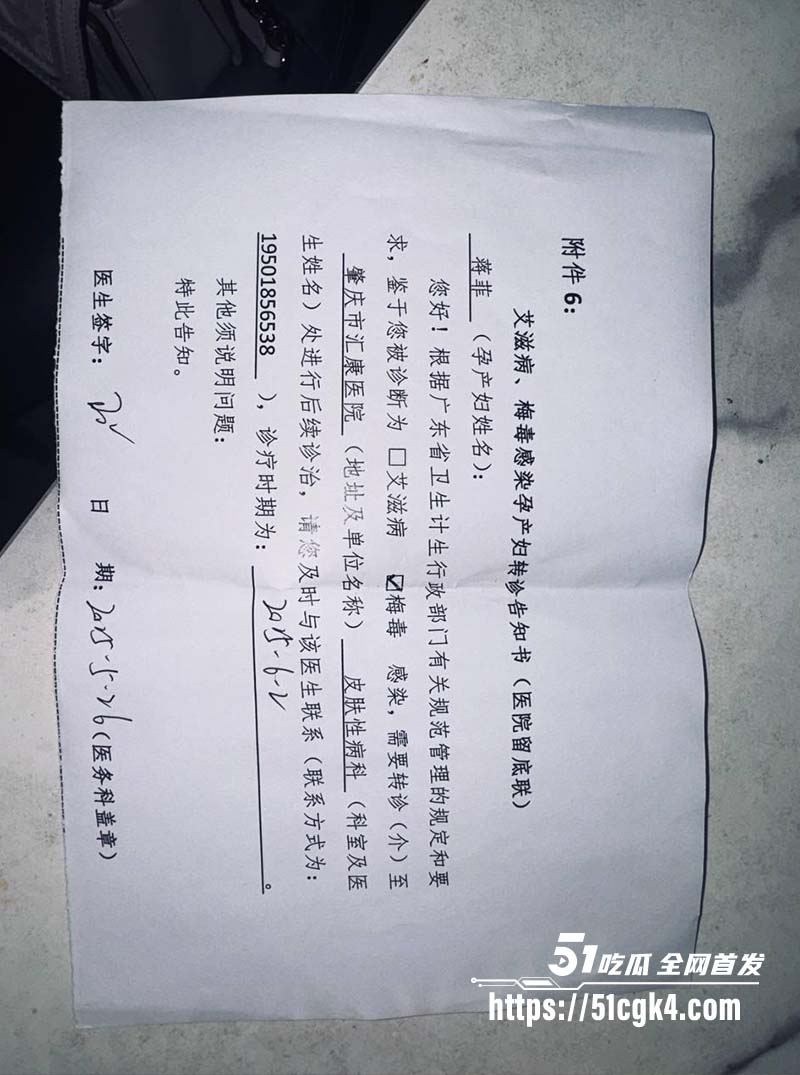 附件 6：
艾滋病、梅毒感染孕产妇转诊告知书（医院留底联）
蒋菲（孕产妇姓名）：
您好！根据广东省卫生计生行政部门有关规范管理的规定和要
求，鉴于您被诊断为 □艾滋病 ☑梅毒 感染，需要转诊（介）至
肇庆市汇康医院（地址及单位名称） 皮肤性病科（科室及医
生姓名）处进行后续诊治，请您及时与该医生联系（联系方式为：
19501856538 ），诊疗时期为： 2025-6-2 。
其他须说明问题：
特此告知。
医生签字： 日 期：2025-5-26（医务科盖章）
51吃瓜 全网首发
https://51cgk4.com